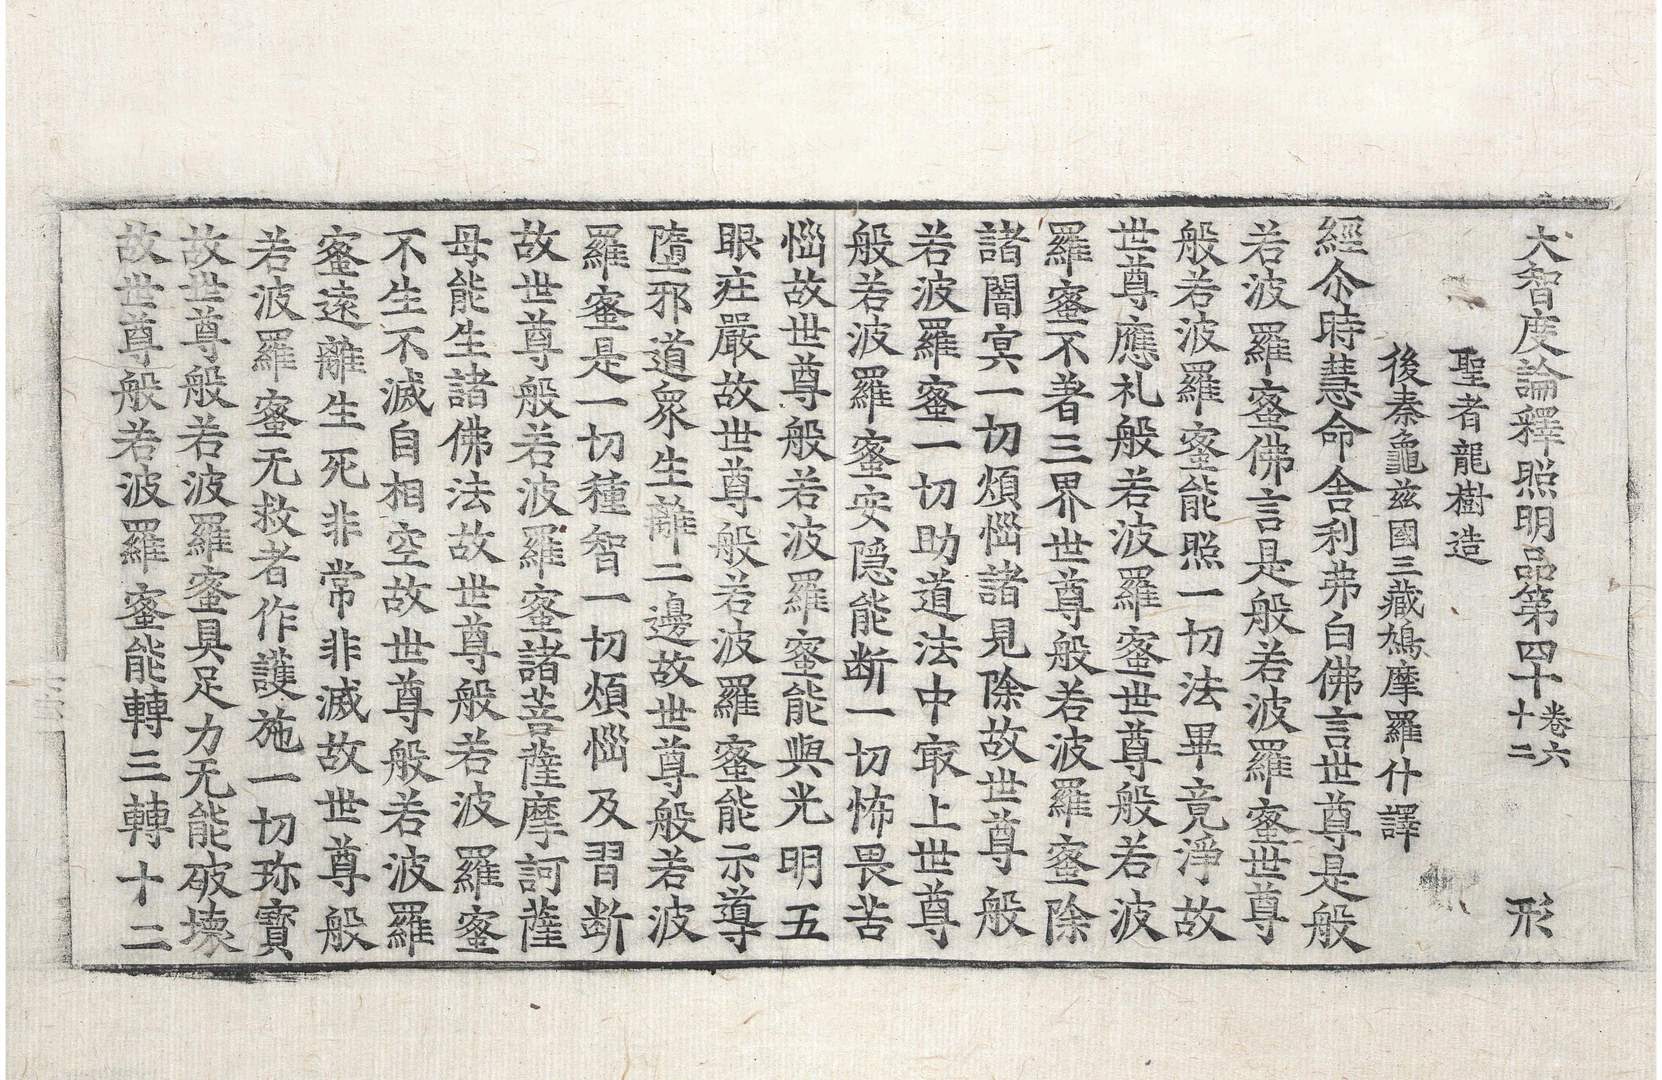 大智度論釋照明品第四十 卷六十二 形
聖者龍樹造
後秦龜兹國三藏鳩摩羅什譯
經尒時慧命舍利弗白佛言世尊是般
若波羅蜜佛言是般若波羅蜜世尊
般若波羅蜜能照一切法畢竟淨故
世尊應礼般若波羅蜜世尊般若波
羅蜜不著三界世尊般若波羅蜜除
諸闇冥一切煩惱諸見除故世尊般
若波羅蜜一切助道法中㝡上世尊
般若波羅蜜安隠能断一切怖畏苦
惱故世尊般若波羅蜜能與光明五
眼疘嚴故世尊般若波羅蜜能示導
墮邪道衆生離二邊故世尊般若波
羅蜜是一切種智一切煩惱及習断
故世尊般若波羅蜜諸菩薩摩訶薩
母能生諸佛法故世尊般若波羅蜜
不生不滅自相空故世尊般若波羅
蜜遠離生死非常非滅故世尊般
若波羅蜜无救者作護施一切珎寶
故世尊般若波羅蜜具足力无能破壊
故世尊般若波羅蜜能轉三轉十二